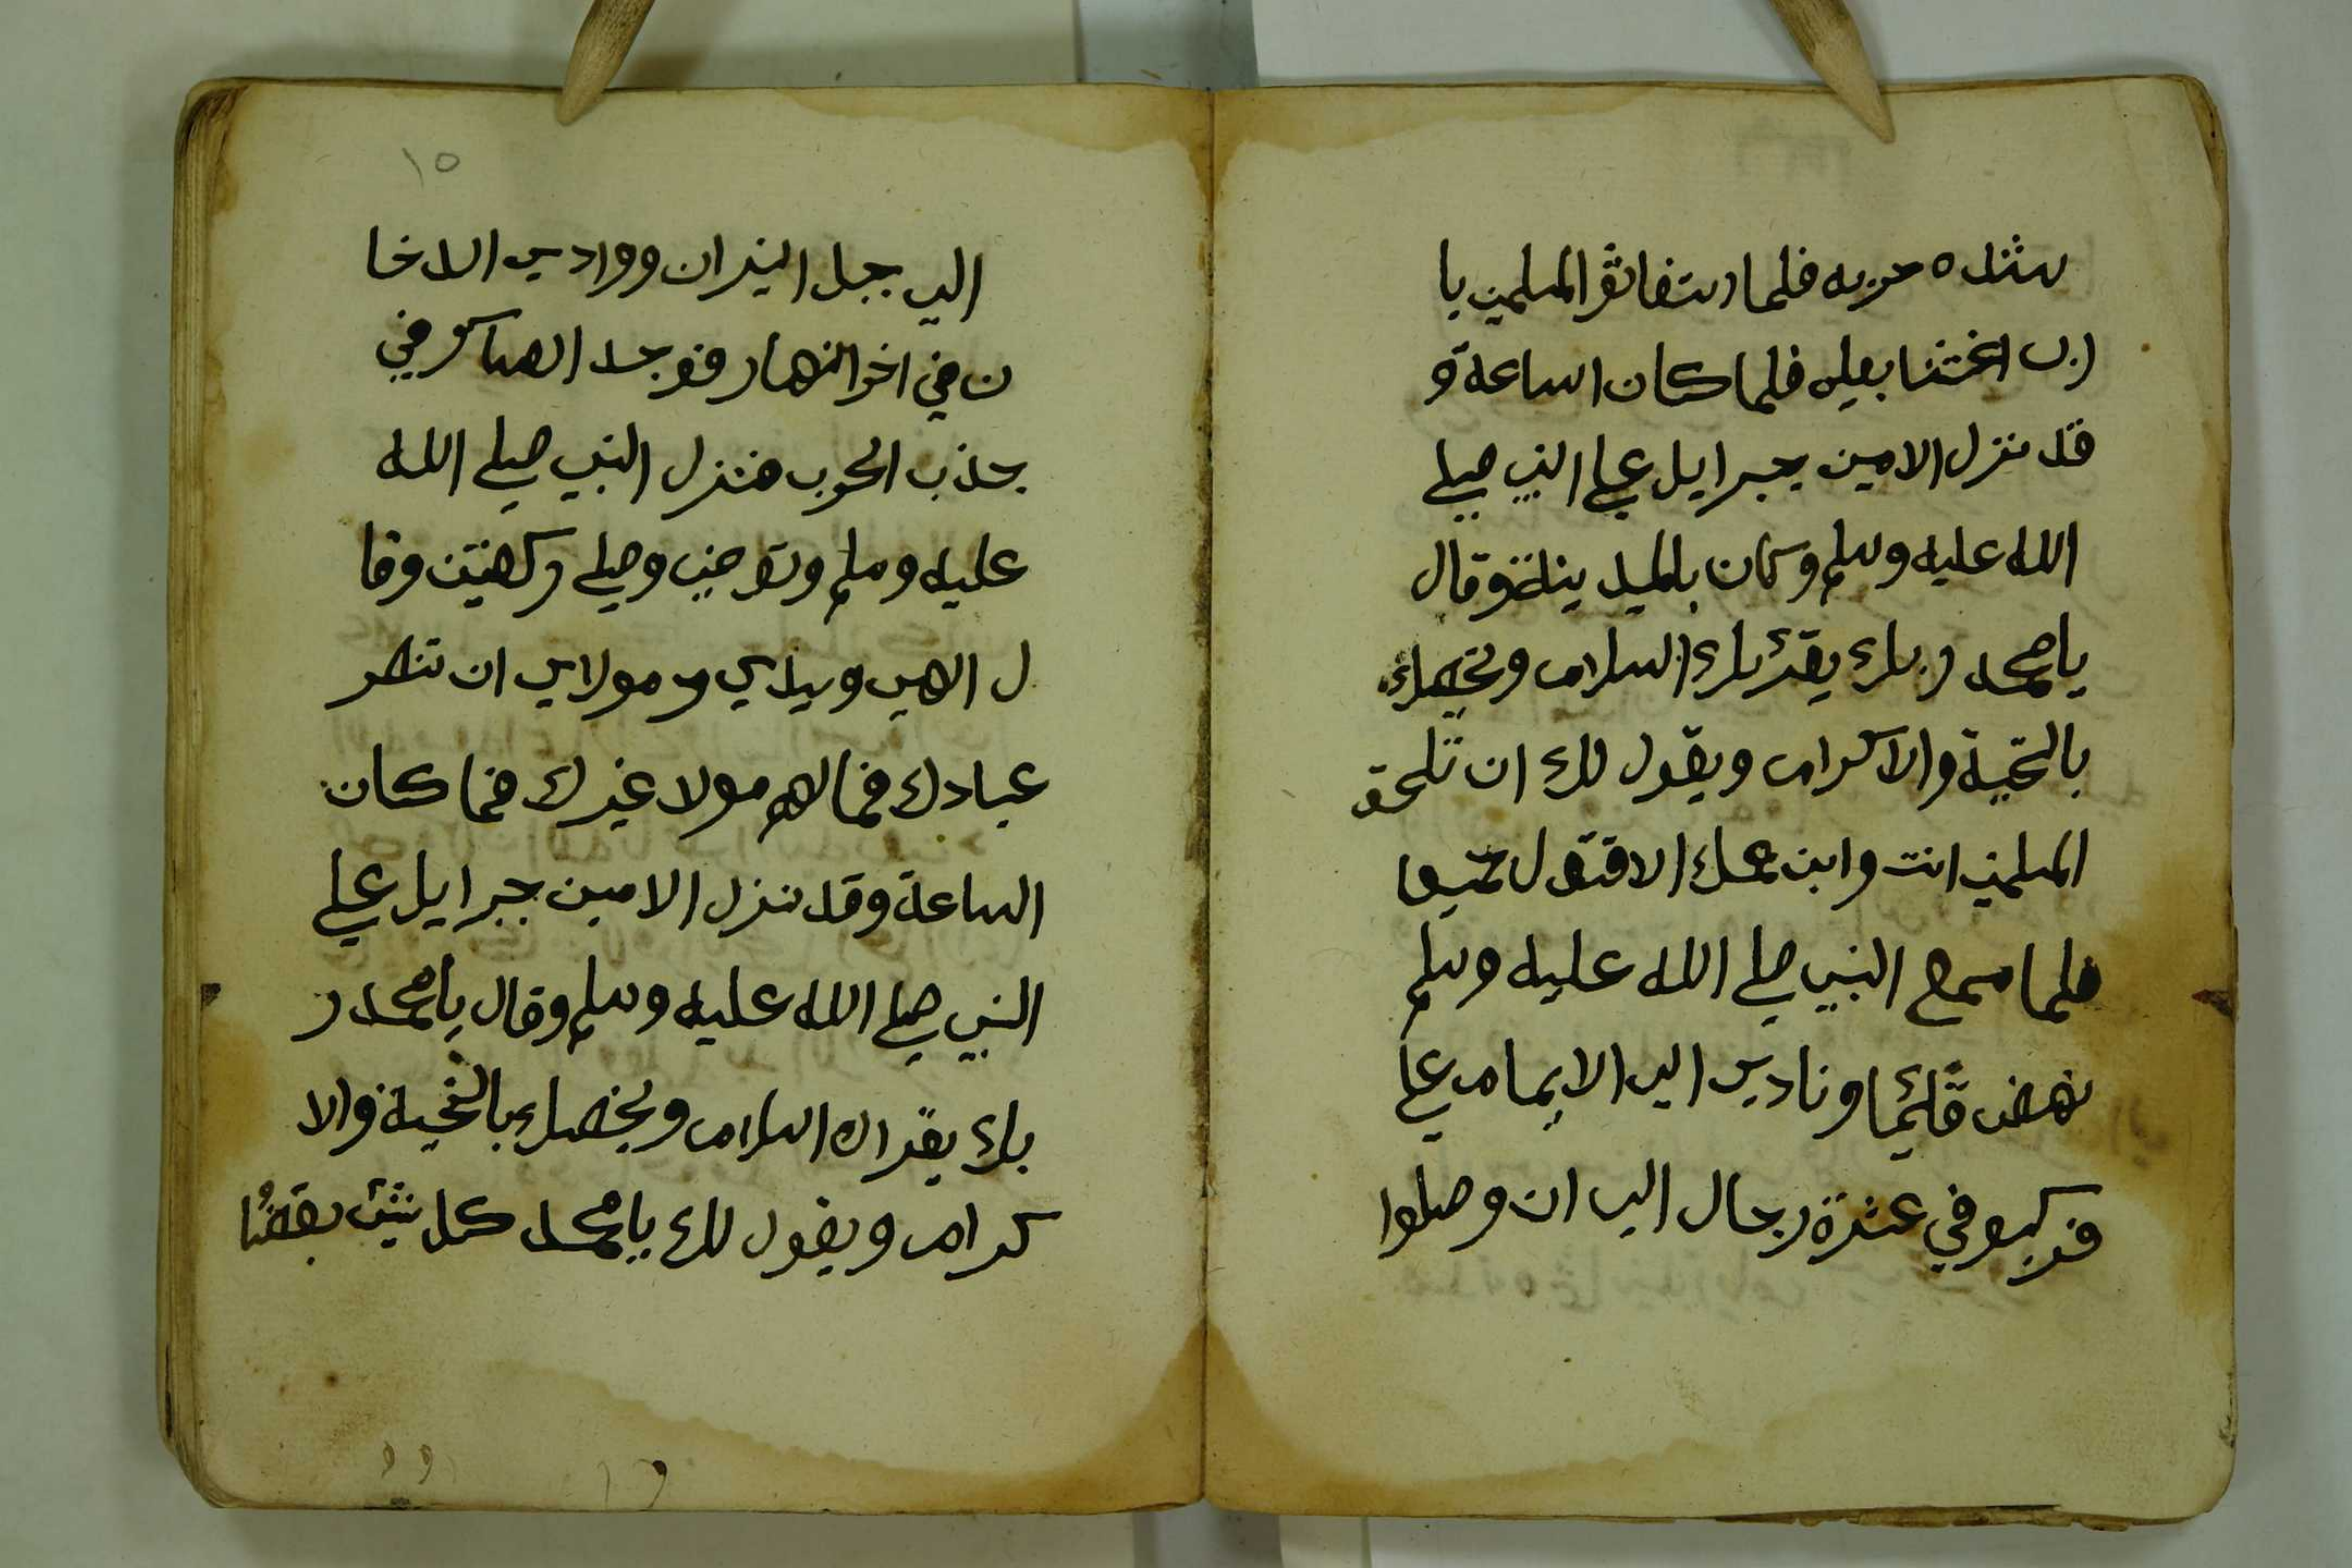 شده حربه فلما استغاثو المسلمين يا
رب اغثنا بعلي فلما كان الساعة و
قد نزل الامين جبرايل علي النبي صلي
الله عليه وسلم وكان بالمدينة وقال
يا محمد ربك يقرئك السلام ويخصك
بالتحية والاكرام ويقول لك ان تلحق
المسلمين انت وابن عمك الا قتول جميعا
فلما سمع النبي صلي الله عليه وسلم
نهض قائما ونادي الي الايمام علي
فركبو في عشرة رجال الي ان وصلوا
١٥
الي جبل النيران ووادي الدخا
ن في اخر النهار فوجد العساكر في
جذب الحرب فنزل النبي صلي الله
عليه وسلم وتوضي وصلي ركعتين وقا
ل الهي وسيدي ومولاي ان تنصر
عبادك فما لهم مولا غيرك فما كان
الساعة وقد نزل الامين جبرايل علي
النبي صلي الله عليه وسلم وقال يا محمد ر
بك يقراك السلام ويخصك بالتحية والا
كرام ويقول لك يا محمد كل شئ بقضا